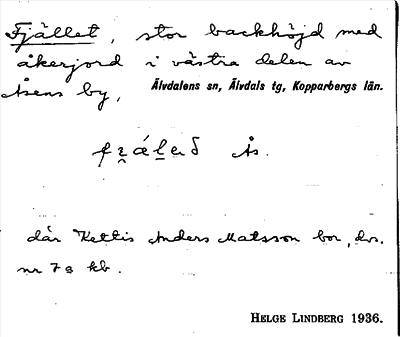 Fjället, stor backhöjd med
åkerjord i västra delen av
Åsens by, Älvdalens sn, Älvdals tg, Kopparbergs län.
Ås.
där Kettis Anders Matsson bor, dvs.
nr 78 kb.
HELGE LINDBERG 1936.